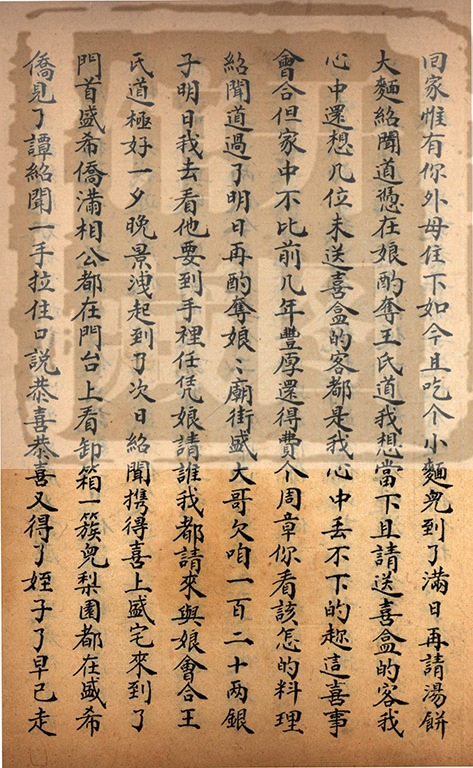 回家惟有你外母住下如今且吃个小麵兒到了滿日再請湯餅
大麵紹聞道憑在娘酌奪王氏道我想當下且請送喜盒的客我
心中還想几位未送喜盒的客都是我心中丢不下的趁這喜事
會合但家中不比前几年豐厚還得費个周章你看該怎的料理
紹聞道過了明日再酌奪娘〻廟街盛大哥欠咱一百二十两銀
子明日我去看他要到手裡任凭娘請誰我都請來與娘會合王
氏道極好一夕晚景洩起到了次日紹聞携得喜上盛宅來到了
門首盛希僑滿相公都在門台上看卸箱一簇兒梨園都在盛希
僑見了譚紹聞一手拉住口說恭喜恭喜又得了姪子了早已走